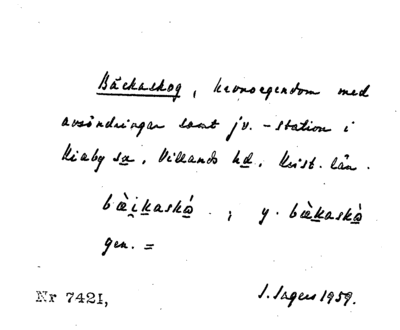 Bäckaskog, kronoegendom med
avsöndringar samt jv.-station i
Kiaby sn, Villands hd, Krist. län.
bæ̀i̯kaskó ̣; y. bæ̀kaskò
gen. =
Nr 7421, I. Ingers 1959.